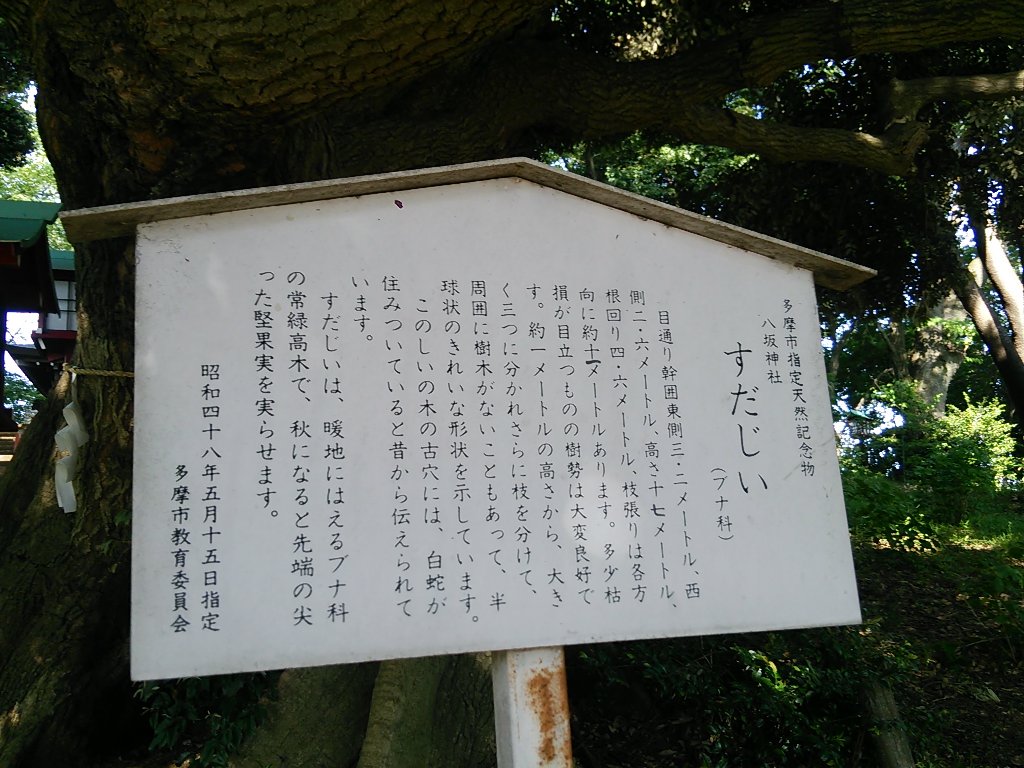 多摩市指定天然記念物
八坂神社
すだじい
(ブナ科)
目通り幹囲東側三・二メートル、西
側二・六メートル、高さ十七メートル、
根回り四・六メートル、枝張りは各方
向に約十二メートルあります。多少枯
損が目立つものの樹勢は大変良好で
す。約一メートルの高さから、大き
く三つに分かれさらに枝を分けて、
周囲に樹木がないこともあって、半
球状のきれいな形状を示しています。
このしいの木の古穴には、白蛇が
住みついていると昔から伝えられて
います。
すだじいは、暖地にはえるブナ科
の常緑高木で、秋になると先端の尖
った堅果実を実らせます。
昭和四十八年五月十五日指定
多摩市教育委員会